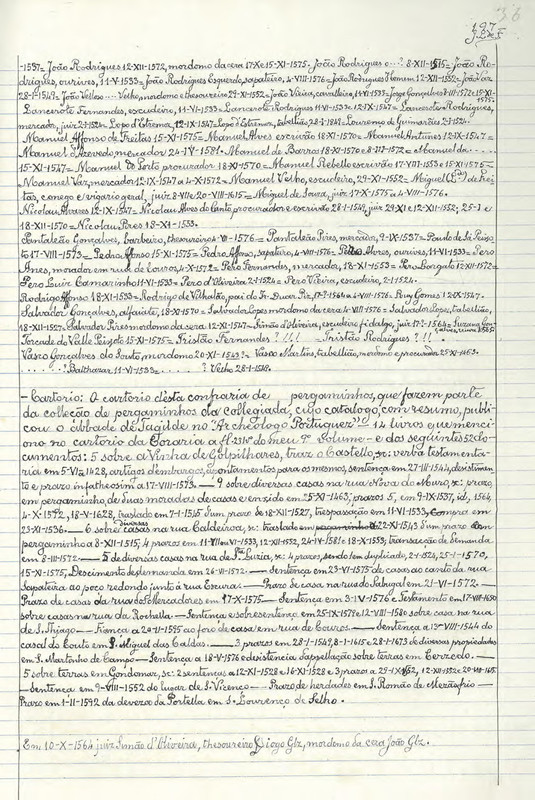 197
-1537= João Rodrigues 12-XII-1572, mordomo da cera 17-X e 15-XI-1575. João Rodrigues o ...? 8-XII-1515= João Ro-
drigues, ourives, 11-V-1533= João Rodrigues Esquerdo, sapateiro, 4-VIII-1576= João Rodrigues Homem 12-XII-1552= João Vaz
28-1-1549= João Velloso ... Velho, mordomo e thesoureiro 29-XI-1552= João Vieira, cavalleiro, 11-VI-1533= Jorge Gonçalves 8-VII e 15-XI-
1575=
Lancerote Fernandes, escudeiro, 11-VI-1533= Lancerote Rodrigues 11-VI-1533 e 12-IX-1547= Lancerote Rodrigues,
mercador, juiz 2-1-1524= Lopo d'Estrema, 12-IX-1547= Lopo d'Estrema, tabellião, 28-1-1549= Lourenço de Guimarães 2-1-1524=
Manuel Affonso de Freitas 15-XI-1575= Manuel Alves escrivão 18-XI-1570= Manuel Antunes 12-IX-1547=
Manuel d'Azevedo mercador 24-IV-1581= Manuel de Barros 18-XI-1570 e 8-III-1572= Manuel da ......
15-XI-1547= Manuel do Porto procurador 18-XI-1570= Manuel Rebello escrivão 17-VIII-1553 e 15-XI-1575=
Manuel Vaz, mercador 12-IX-1547 e 4-X-1572= Manuel Velho, escudeiro, 29-XI-1552= Miguel de Frei-
tas, conego e vigario geral, juiz 8-VII e 20-VIII-1615= Miguel de Sousa, juiz 17-X-1575 e 4-VIII-1576.
Nicolau Alvares 12-IX-1547= Nicolau Alves do Canto, procurador e escrivão 28-1-1549, juiz 29-XI e 12-XII-1552; 25-1 e
18-XII-1570= Nicolau Pires 18-XI-1533.
Pantaleão Gonçalves, barbeiro, thesoureiro 4-VIII-1576= Pantaleão Pires, mercador, 9-IX-1537= Paulo de Sá Peixo-
to 17-VIII-1573= Pedro Affonso 15-X-1575= Pedro Affonso, sapateiro, 4-VIII-1576= Pedro Alvres, ourives, 11-VI-1533= Pero
Anes, morador em rua de Couros, 4-X-1572= Pero Fernandes, mercador, 18-XI-1533= Pero Gonçalo 12-XII-1572=
Pero Luiz Camarinho 11-VI-1533= Pero d'Oliveira 2-1-1524= Pero Vieira, escudeiro, 2-1-1524.
Rodrigo Affonso 18-XI-1533= Rodrigo de Vilhalão, pai do Fr. Duar Piz, 17-7-1564 e 4-VIII-1576= Ruy Gomes 12-IX-1547.
Salvador Gonçalves, alfaiate, 18-XI-1570= Salvador Lopes mordomo da cera 4-VIII-1576= Salvador Lopes, tabellião,
18-XII-1527= Salvador Pires mordomo da cera 12-XI-1547= Simão d'Oliveira, escudeiro fidalgo, juiz 17-7-1564=
Torcade do Valle Peixoto 15-X-1575= Tristão Fernandes ?!!! = Tristão Rodrigues ?!!.
Vasco Gonçalves do Souto, mordomo 20-XI-1549?= Vasco Martins, tabellião, mordomo e procurador 25-XI-1463.
.......? Balthazar 11-VI-1533= .......? Velho 28-1-1549.
- Cartorio: O cartorio d'esta confraria de pergaminhos, que fazem parte
da collecção de pergaminhos da collegiada, cujo catalogo, com resumo, publi-
cou o abbade de Tagilde no "Archeologo Portuguez" 14 livros que menci-
ono no cartorio da Coraria a fl. 231 do meu 7º volume - e dos seguintes 52 do-
cumentos: 5 sobre a Vinha de Golpilhares, traz o Castello, sc: verba testamenta-
ria em 5-VI-1428, artigos d'embargos, apontamentos para os mesmos, sentença em 27-III-1544, desistimen-
to e prazo infatheosim a 17-VIII-1573.- 9 sobre diversas casas na rua Nova do Muro, sc: prazo,
em pergaminho, de duas moradas de casas e enxido em 25-XI-1463, prazos 5, em 9-IX-1537, id, 1564,
4-X-1572, 18-V-1628, traslado em 7-1-1545 d'um prazo de 18-XII-1527, trespassação em 11-VI-1533, compra em
23-XI-1536.- 6 sobre diversas casas na rua Caldeiroa, sc: traslado em 22-XI-1543 d'um prazo em
pergaminho a 8-XII-1515, 4 prazos em 11-VI-1533, 12-XII-1552, 24-IV-1581 e 18-X-1553, transacção de demanda
em 8-III-1572.- 5 de diversas casas na rua de Sta Luzia, sc: 4 prazos, sendo 1 em duplicado, 2-1-1524, 25-1-1570,
15-XI-1575, Descimento de demanda em 26-VI-1572.- sentença em 29-VI-1575 de casas ao canto da rua
Sapateira ao poço redondo junto á rua Escura.- Prazo de casa na rua do Sabugal em 21-VI-1572.-
Prazo de casas da rua dos Mercadores em 17-X-1575- Sentença em 3-IV-1576 e Testamento em 17-VIII-1650
sobre casas na rua da Rochella.- Sentença e sobresentença em 25-IX-1579 e 12-VIII-1580 sobre casa na rua
de S. Thiago.- Fiança a 20-VI-1595 ao foro de casa em rua de Couros.- Sentença a 13-VIII-1544 do
casal do Couto em S. Miguel das Caldas.- 3 prazos em 28-1-1549, 8-1-1615 e 28-1-1673 de diversas propriedades
em S. Martinho de Campo- Sentença a 18-V-1576 e desistencia d'appellação sobre terras em Cerzedo.-
5 sobre terras em Gondomar, sc: 2 sentenças a 12-XI-1528 e 16-XI-1528 e 3 prazos a 29-IX-1552, 12-XII-1552 e 20-VIII-1615.
- Sentença em 9-VIII-1552 do lugar de S. Vicenço- Prazo de herdades em S. Romão de Mezão frio-
Prazo em 1-II-1592 da deveza da Portella em S. Lourenço de Selho.
Em 10-X-1564 juiz Simão d'Oliveira, thesoureiro Diogo Glz, mordomo da cera João Glz.